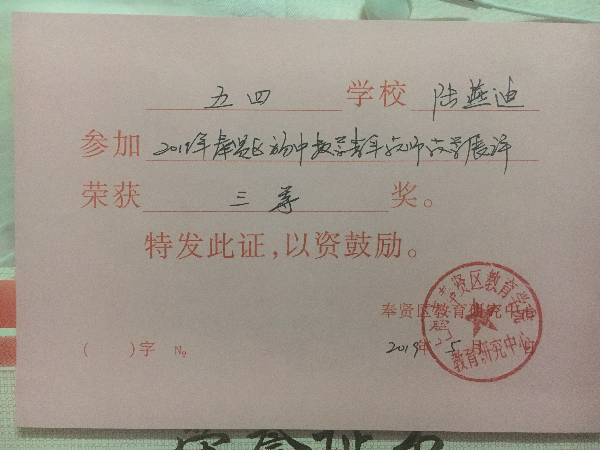 五四 学校 陆燕迪
参加 2019年奉贤区初中数学青年教师教学展评
荣获 三等 奖。
特发此证,以资鼓励。
奉贤区教育研究中心
2019年 5月
( )字 №
贤区教育学院
教育研究中心